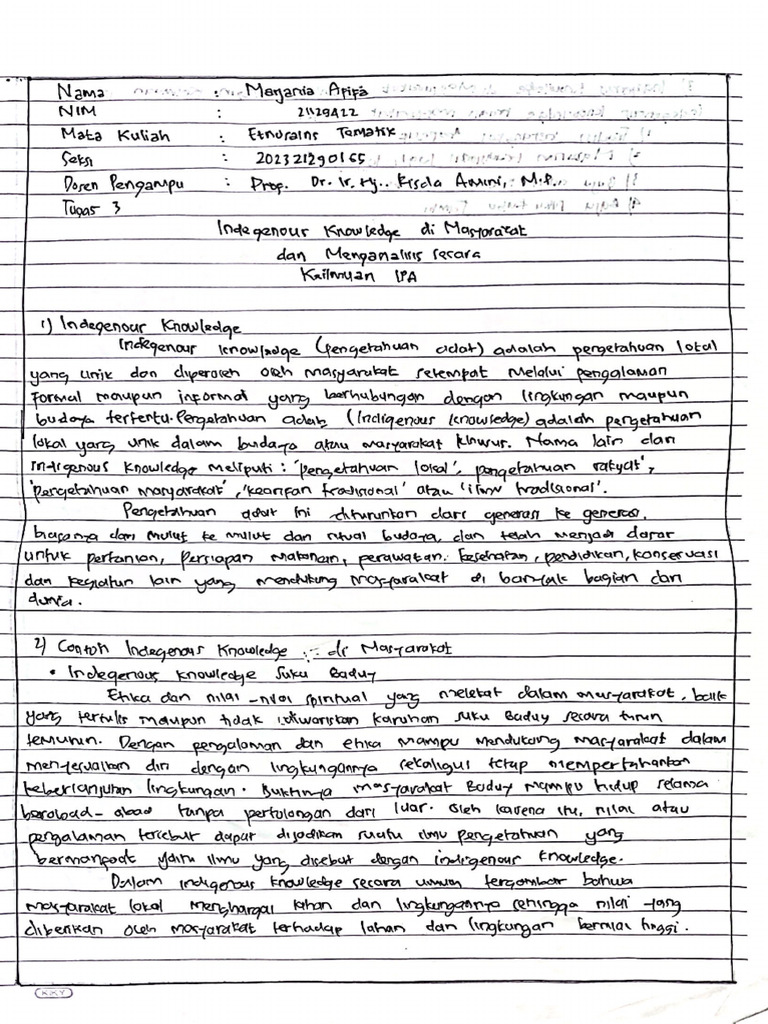 Nama : Meyania Afifa
NIM : 21129422
Mata Kuliah : Etnosains Tematik
Seksi : 202321290165
Dosen Pengampu : Prof. Dr. Ir. Hj. Risda Amini, M.P.
Tugas 3
Indegenous Knowledge di Masyarakat
dan Menganalisis secara
Keilmuan IPA
1) Indegenous Knowledge
Indegenous knowledge (pengetahuan adat) adalah pengetahuan lokal
yang unik dan diperoleh oleh masyarakat setempat melalui pengalaman
formal maupun informal yang berhubungan dengan lingkungan maupun
budaya tertentu. Pengetahuan adat (Indigenous knowledge) adalah pengetahuan
lokal yang unik dalam budaya atau masyarakat khusus. Nama lain dari
indigenous knowledge meliputi : 'pengetahuan lokal', pengetahuan rakyat',
'pengetahuan masyarakat', 'kearifan tradisional' atau 'ilmu tradisional'.
Pengetahuan adat ini diturunkan dari generasi ke generasi,
biasanya dari mulut ke mulut dan ritual budaya, dan telah menjadi dasar
untuk pertanian, persiapan makanan, perawatan kesehatan, pendidikan, konservasi
dan kegiatan lain yang mendukung masyarakat di banyak bagian dari
dunia.
2) Contoh Indegenous Knowledge di Masyarakat
• Indegenous knowledge Suku Baduy
Etika dan nilai-nilai spiritual yang melekat dalam masyarakat, baik
yang tertulis maupun tidak diwariskan karuhan suku Baduy secara turun
temurun. Dengan pengalaman dan etika mampu mendukung masyarakat dalam
menyesuaikan diri dengan lingkungannya sekaligus tetap mempertahankan
keberlanjutan lingkungan. Buktinya masyarakat Baduy mampu hidup selama
berabad-abad tanpa pertolongan dari luar. Oleh karena itu, nilai atau
pengalaman tersebut dapat dijadikan suatu ilmu pengetahuan yang
bermanfaat yaitu ilmu yang disebut dengan indigenous knowledge.
Dalam indigenous knowledge secara umum tergambar bahwa
masyarakat lokal menghargai lahan dan lingkungannya sehingga nilai yang
diberikan oleh masyarakat terhadap lahan dan lingkungan bernilai tinggi.
KKY